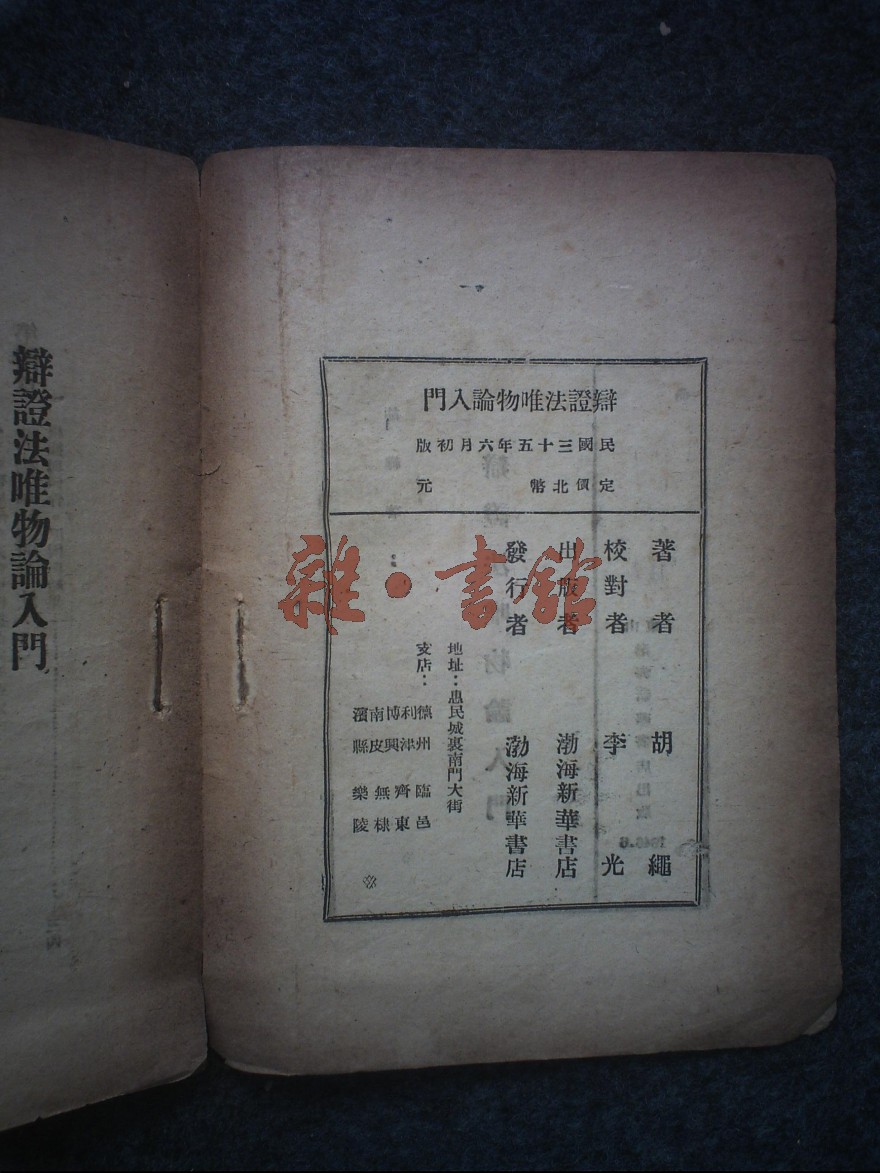 辯證法唯物論入門
辯證法唯物論入門
民國三十五年六月初版
定價北幣 元
著者 胡繩
校對者 李光
出版者 渤海新華書店
發行者 渤海新華書店
地址：惠民城裏南門大街
支店：
德州 利津 博興 南皮 濱縣
臨邑 齊東 無棣 樂陵
雜·書館